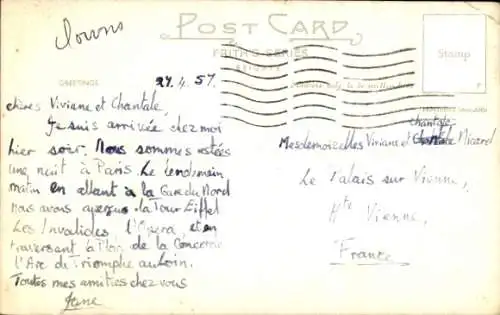 Downs
POST CARD
FRITH'S SERIES
REIGATE
Stamp
GREETINGS
27.4.57.
chères Viviane et Chantale,
Je suis arrivée chez moi
hier soir. Nous sommes restées
une nuit à Paris. Le lendemain
matin en allant à la Gare du Nord
nous avons aperçu la Tour Eiffel
Les Invalides, l'Opéra, et en
traversant la Place de la Concorde
l'Arc de Triomphe au loin.
Toutes mes amitiés chez vous
June
chantale
Mesdemoiselles Viviane et Chantale Nicard
Le Palais sur Vienne,
Hte Vienne,
France